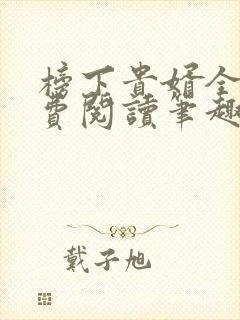 榜下貴婿全
費閱讀筆趣
戴子旭